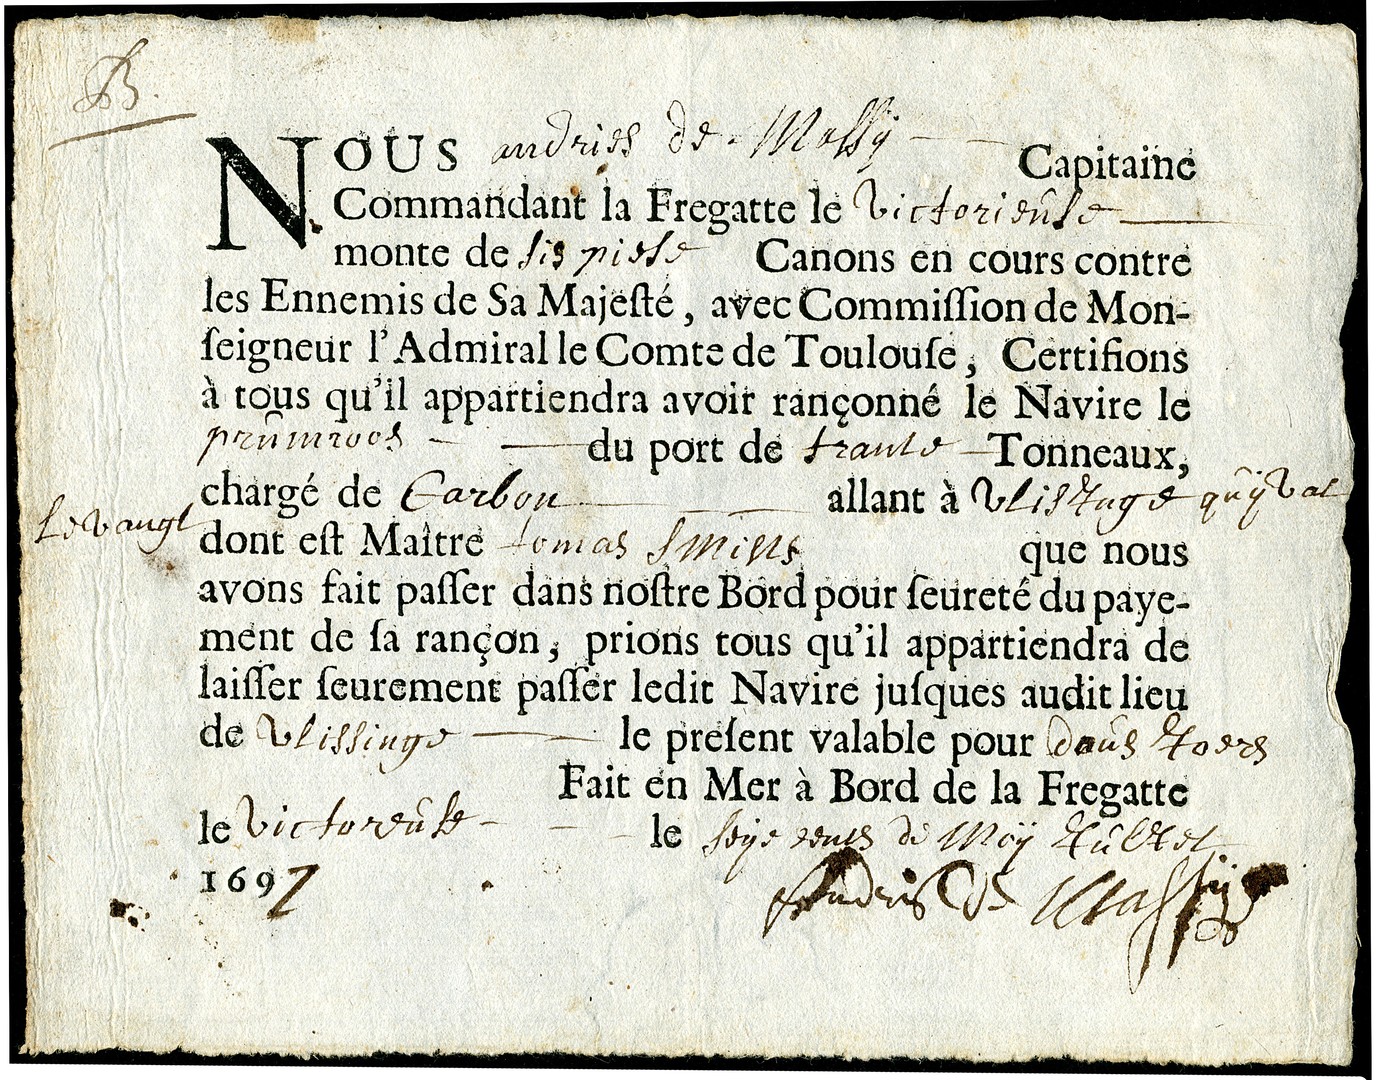 B.
NOUS andries de Massÿ Capitaine
Commandant la Fregatte le victorieuse
monte de sis piese Canons en cours contre
les Ennemis de Sa Majeſté, avec Commiſſion de Mon-
ſeigneur l'Admiral le Comte de Toulouſe, Certifions
à tous qu'il appartiendra avoir rançonné le Navire le
prumroos du port de trante Tonneaux,
chargé de Carbon allant à
dont eſt Maître tomas Smits que nous
avons fait paſſer dans noſtre Bord pour ſeureté du paye-
ment de ſa rançon, prions tous qu'il appartiendra de
laiſſer ſeurement paſſer ledit Navire juſques audit lieu
de vlissinge le préſent valable pour
Fait en Mer à Bord de la Fregatte
le victoreuse le
1697 Andris De Massÿ